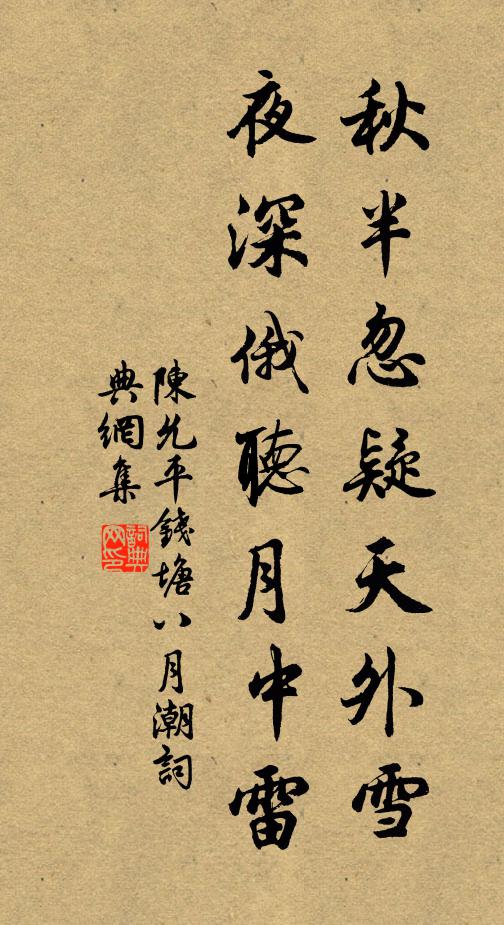 秋半忽疑天外雪
夜深俄聽月中雷
陳允平錢塘八月潮詞
典網集
詞典
网印